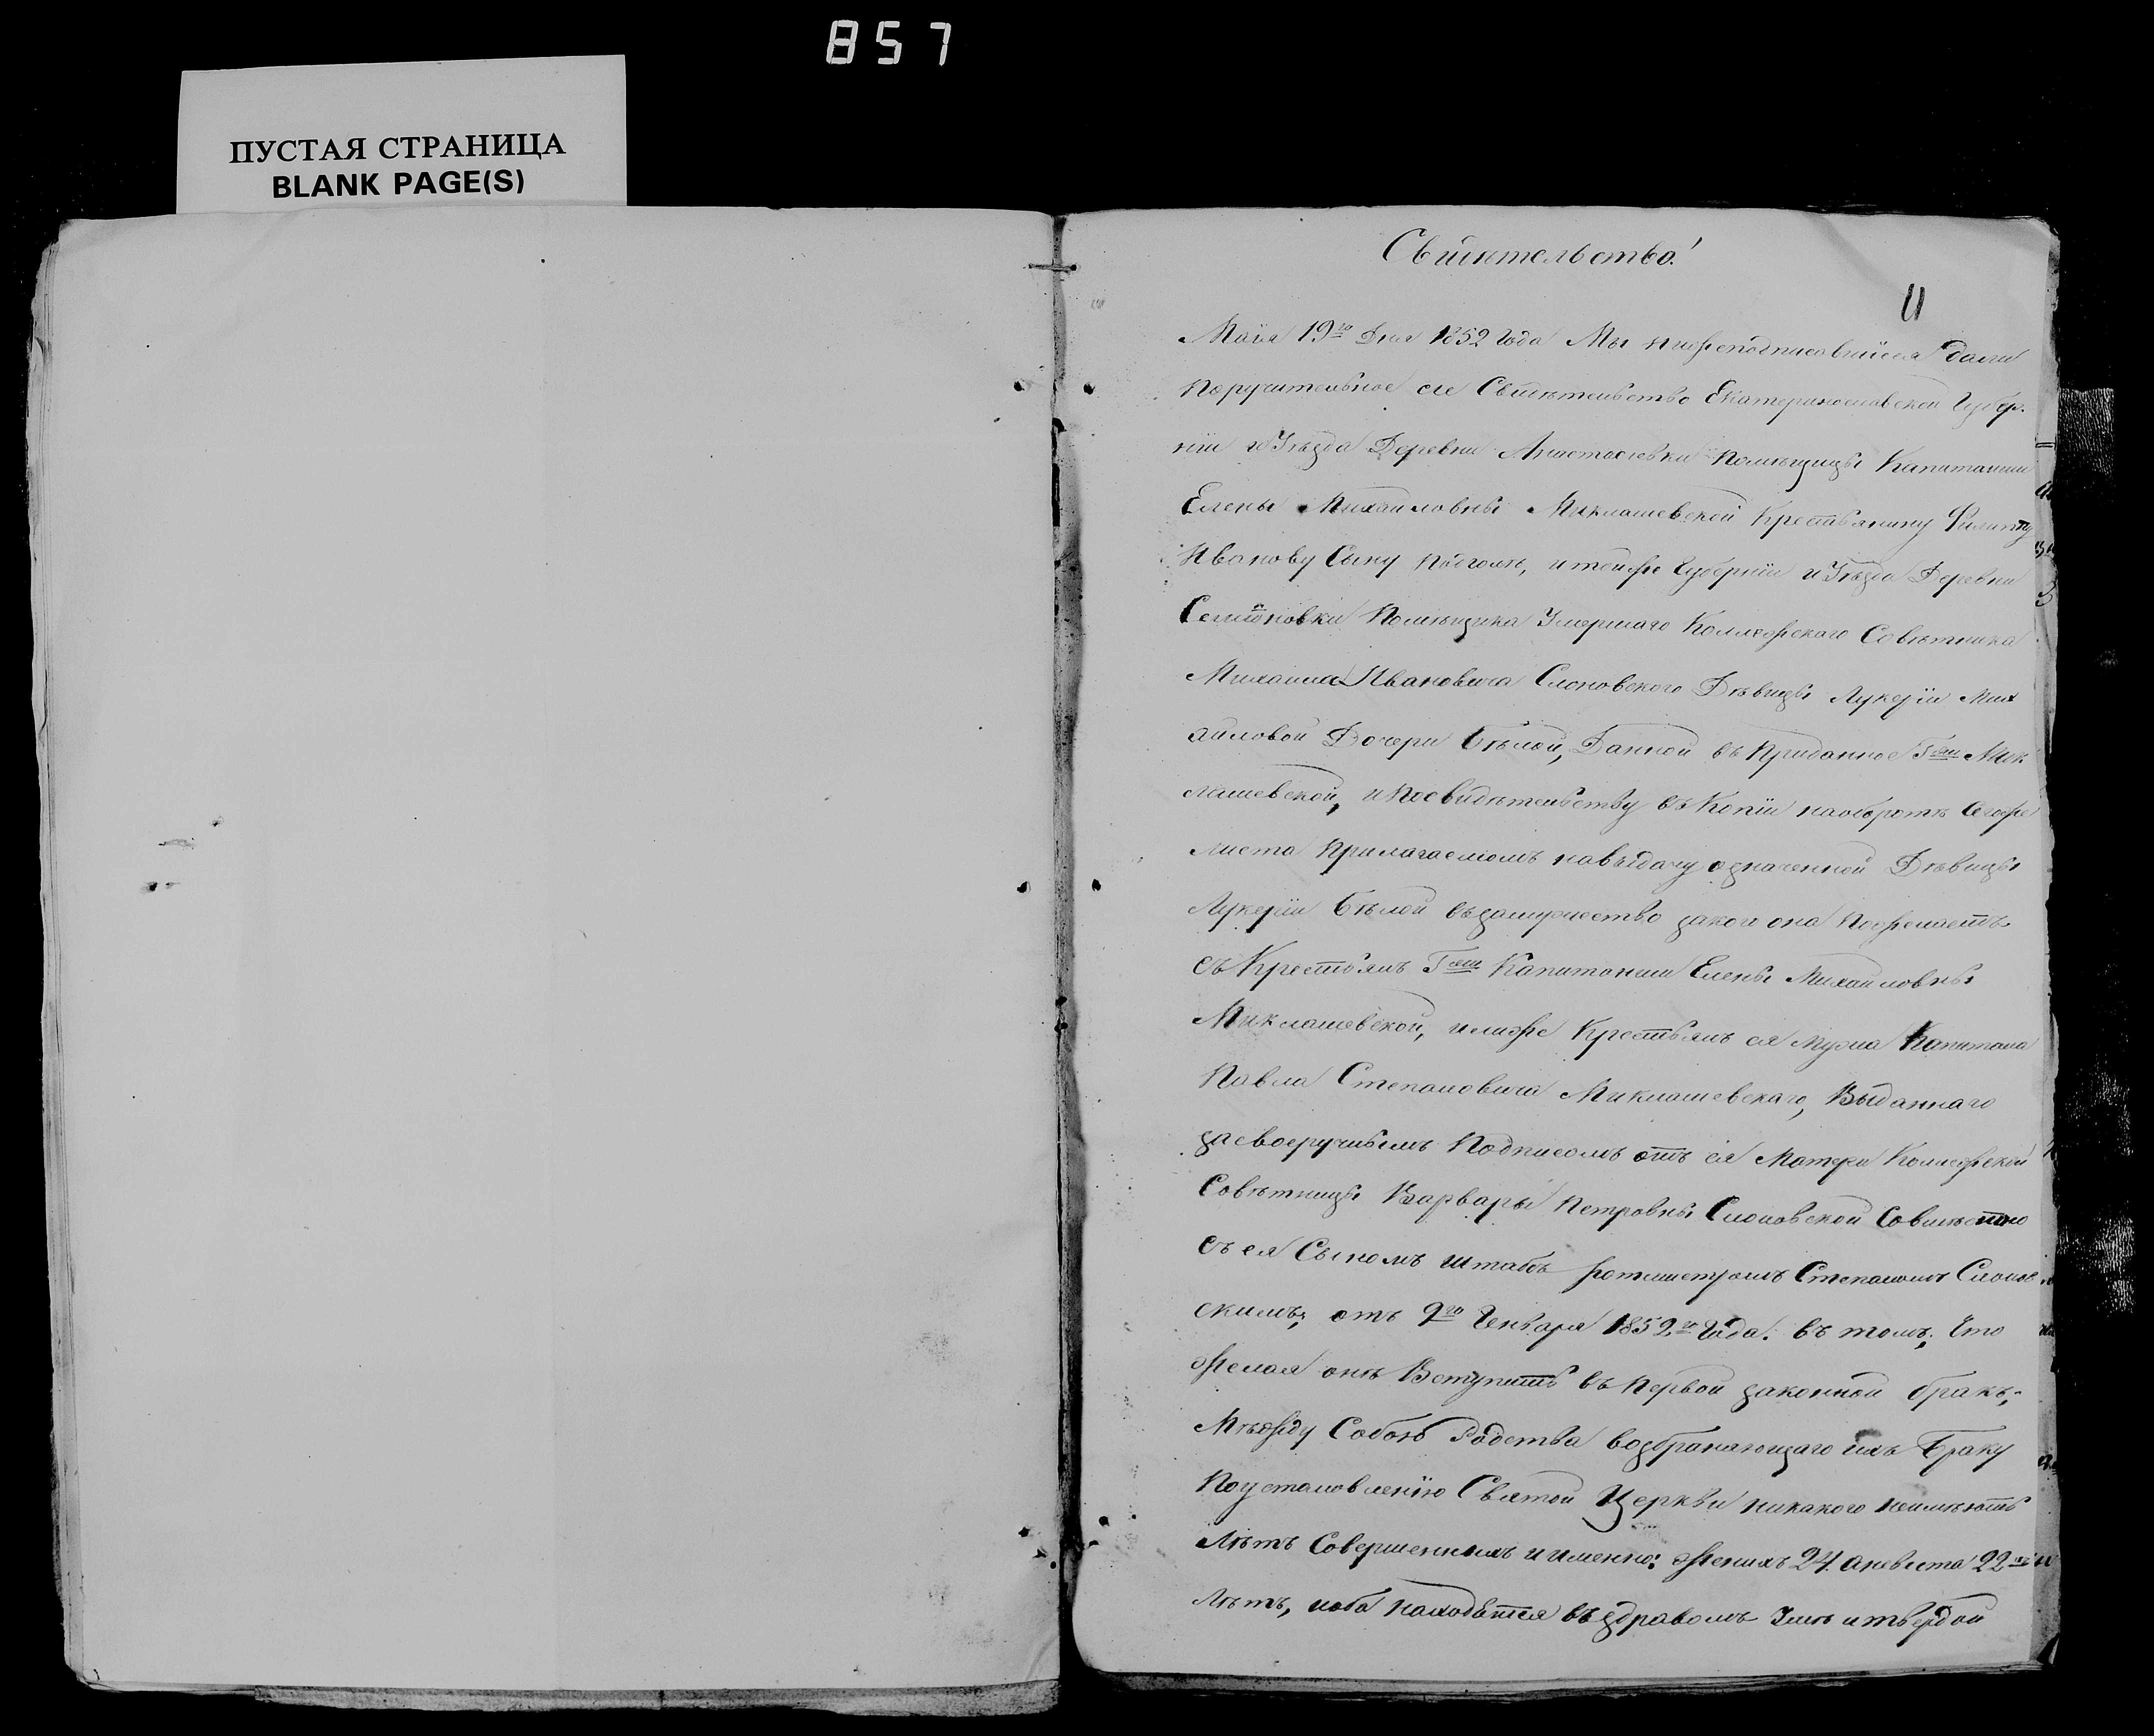 857
ПУСТАЯ СТРАНИЦА
BLANK PAGE(S)
Свидѣтельство!
11
Маія 19го Дня 1852 Года Мы нижеподписавшіеся дали
Поручительное сіе Свидѣтельство Екатеринославской Губер-
ніи и Уѣзда Деревни Помѣщицы Капитанши
Елены Михаиловны Миклашевской Крестьянину Филипу
Иванову Сыну и тойже Губерніи и Уѣзда Деревни
Семіоновки Помѣщика Умершаго Коллежскаго Совѣтника
Михаила Ивановича Слоновского Дѣвицы Лукеріи Мих
айловой Дочери Бѣлой, Данной въ Приданное Гжи Мик
лашевской, и Посвидѣтельству въ Копіи наоборотѣ сегоже
листа Прилагаемомъ навыдачу означенной Дѣвицы
Лукеріи Бѣлой въ замужество закого она Пожелаетъ
съ Крестьянъ Гжи Капитанши Елены Михаиловны
Миклашевской, илиже Крестьянъ ея мужа Капитана
Павла Степановича Миклашевскаго, Выданнаго
засвоеручнымъ Подписомъ отъ ея Матери Колежской
Совѣтницы Варвары Петровны Слоновской Совмѣстно
съ ея Сыномъ штабъ ротмистромъ Степаномъ Слонов
скимъ; отъ 9го Генваря 1852го Года. въ томъ; Что
желая онѣ Вступить въ Первой законной бракъ;
Мѣжду Собою Родства возбраняющаго ихъ Браку
Поустановленію Святой Церкви никакого неимѣютъ
Лѣтъ Совершенныхъ и именно: Женихъ 24. аневеста 22
Лѣтъ, иоба находѣтся въ здравомъ Умѣ и твердой